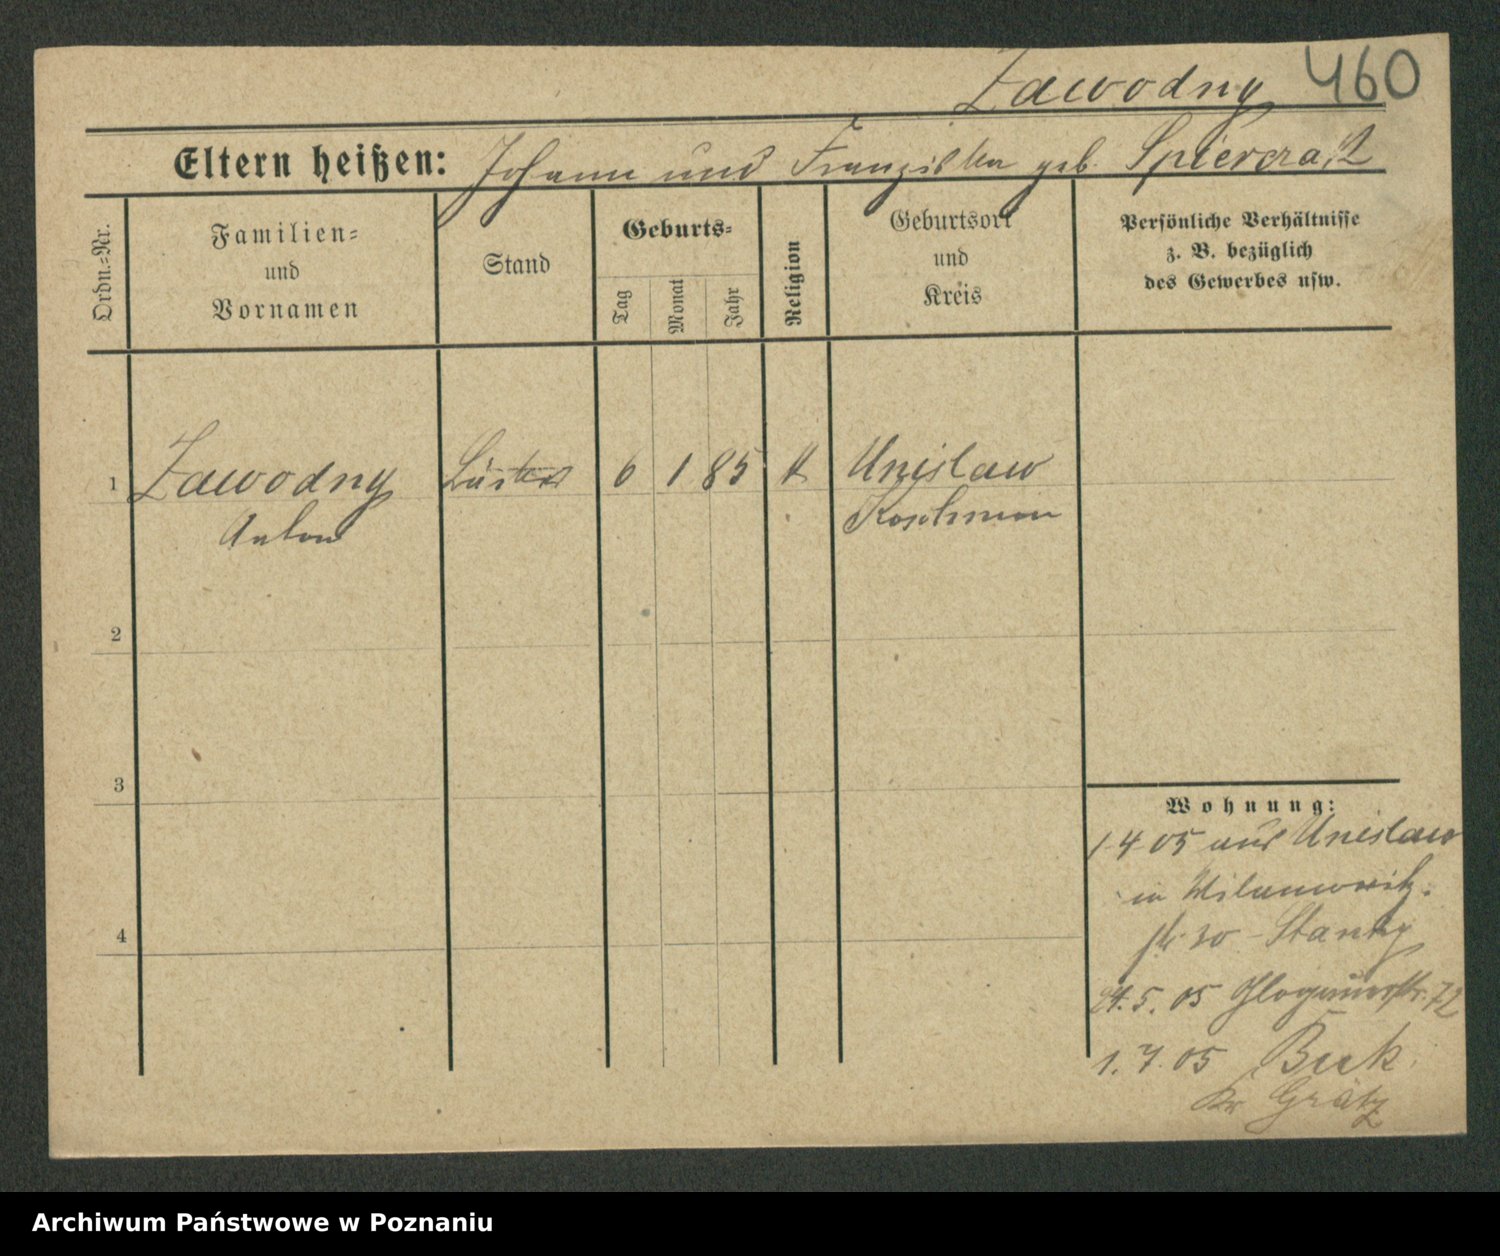 Zawodny 460
Eltern heißen: Johann und Franziska geb.
Ordn.=Nr.
Familien=
und
Vornamen
Stand
Geburts=
Tag
Monat
Jahr
Religion
Geburtsort
und
Kreis
Persönliche Verhältnisse
z. B. bezüglich
des Gewerbes usw.
1 Zawodny 6 1 85 k Unislaw
Anton Koschmin
2
3
4
Wohnung:
1 4 05 aus Unislaw
in
30
24. 5. 05 Glogauerstr. 72
1. 7. 05 Buk
Kr Grätz
Archiwum Państwowe w Poznaniu